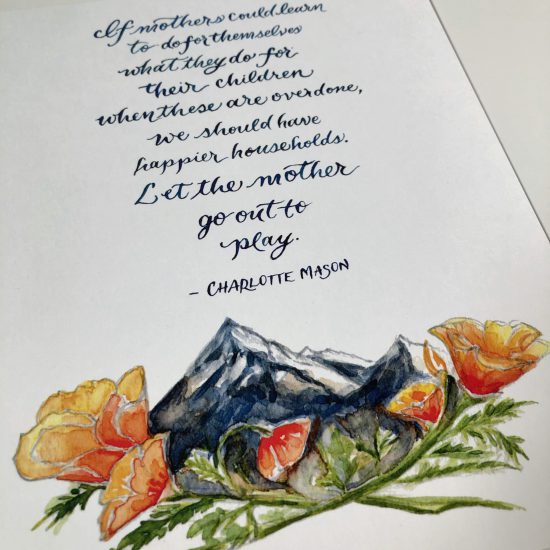 If mothers could learn
to do for themselves
what they do for
their children
when these are overdone,
we should have
happier households.
Let the mother
go out to
play.
- CHARLOTTE MASON